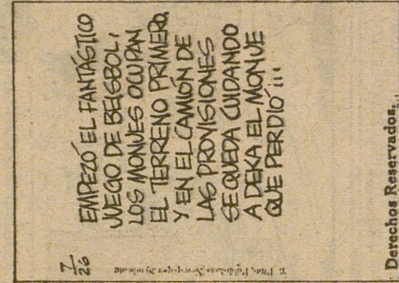 EMPEZÓ EL FANTÁSTICO
JUEGO DE BEISBOL;
LOS MONJES OCUPAN
EL TERRENO PRIMERO,
Y EN EL CAMIÓN DE
LAS PROVISIONES
SE QUEDA CUIDANDO
A DEKA EL MONJE
QUE PERDIÓ...
7/26
Derechos Reservados.